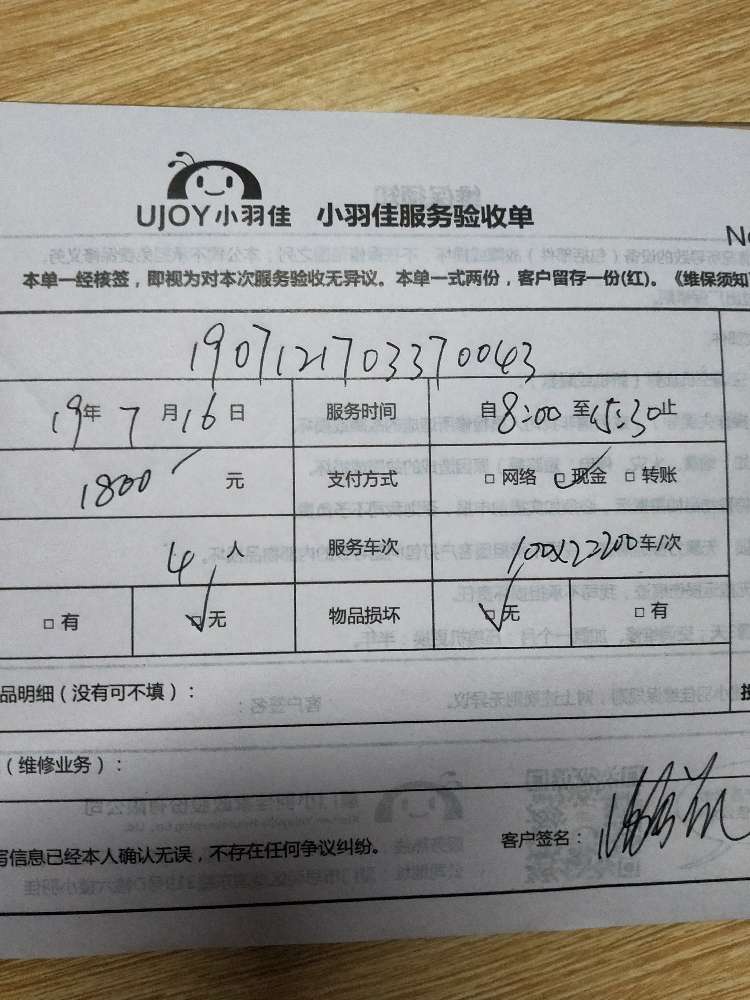 UJOY小羽佳 小羽佳服务验收单
No
本单一经核签，即视为对本次服务验收无异议。本单一式两份，客户留存一份(红)。《维保须知
1907121703370043
19年 7 月 16 日 服务时间 自8:00 至15:30止
1800 元 支付方式 □ 网络 ☑ 现金 □ 转账
4 人 服务车次 100x2=200车/次
□ 有 ☑ 无 物品损坏 ☑ 无 □ 有
品明细（没有可不填）：
（维修业务）：
写信息已经本人确认无误，不存在任何争议纠纷。 客户签名：